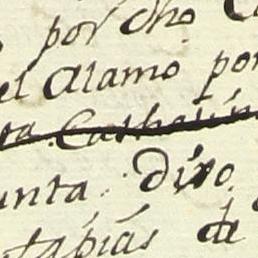 por dho
el Alamo por
Cathalin
unta. dixo
tapias de